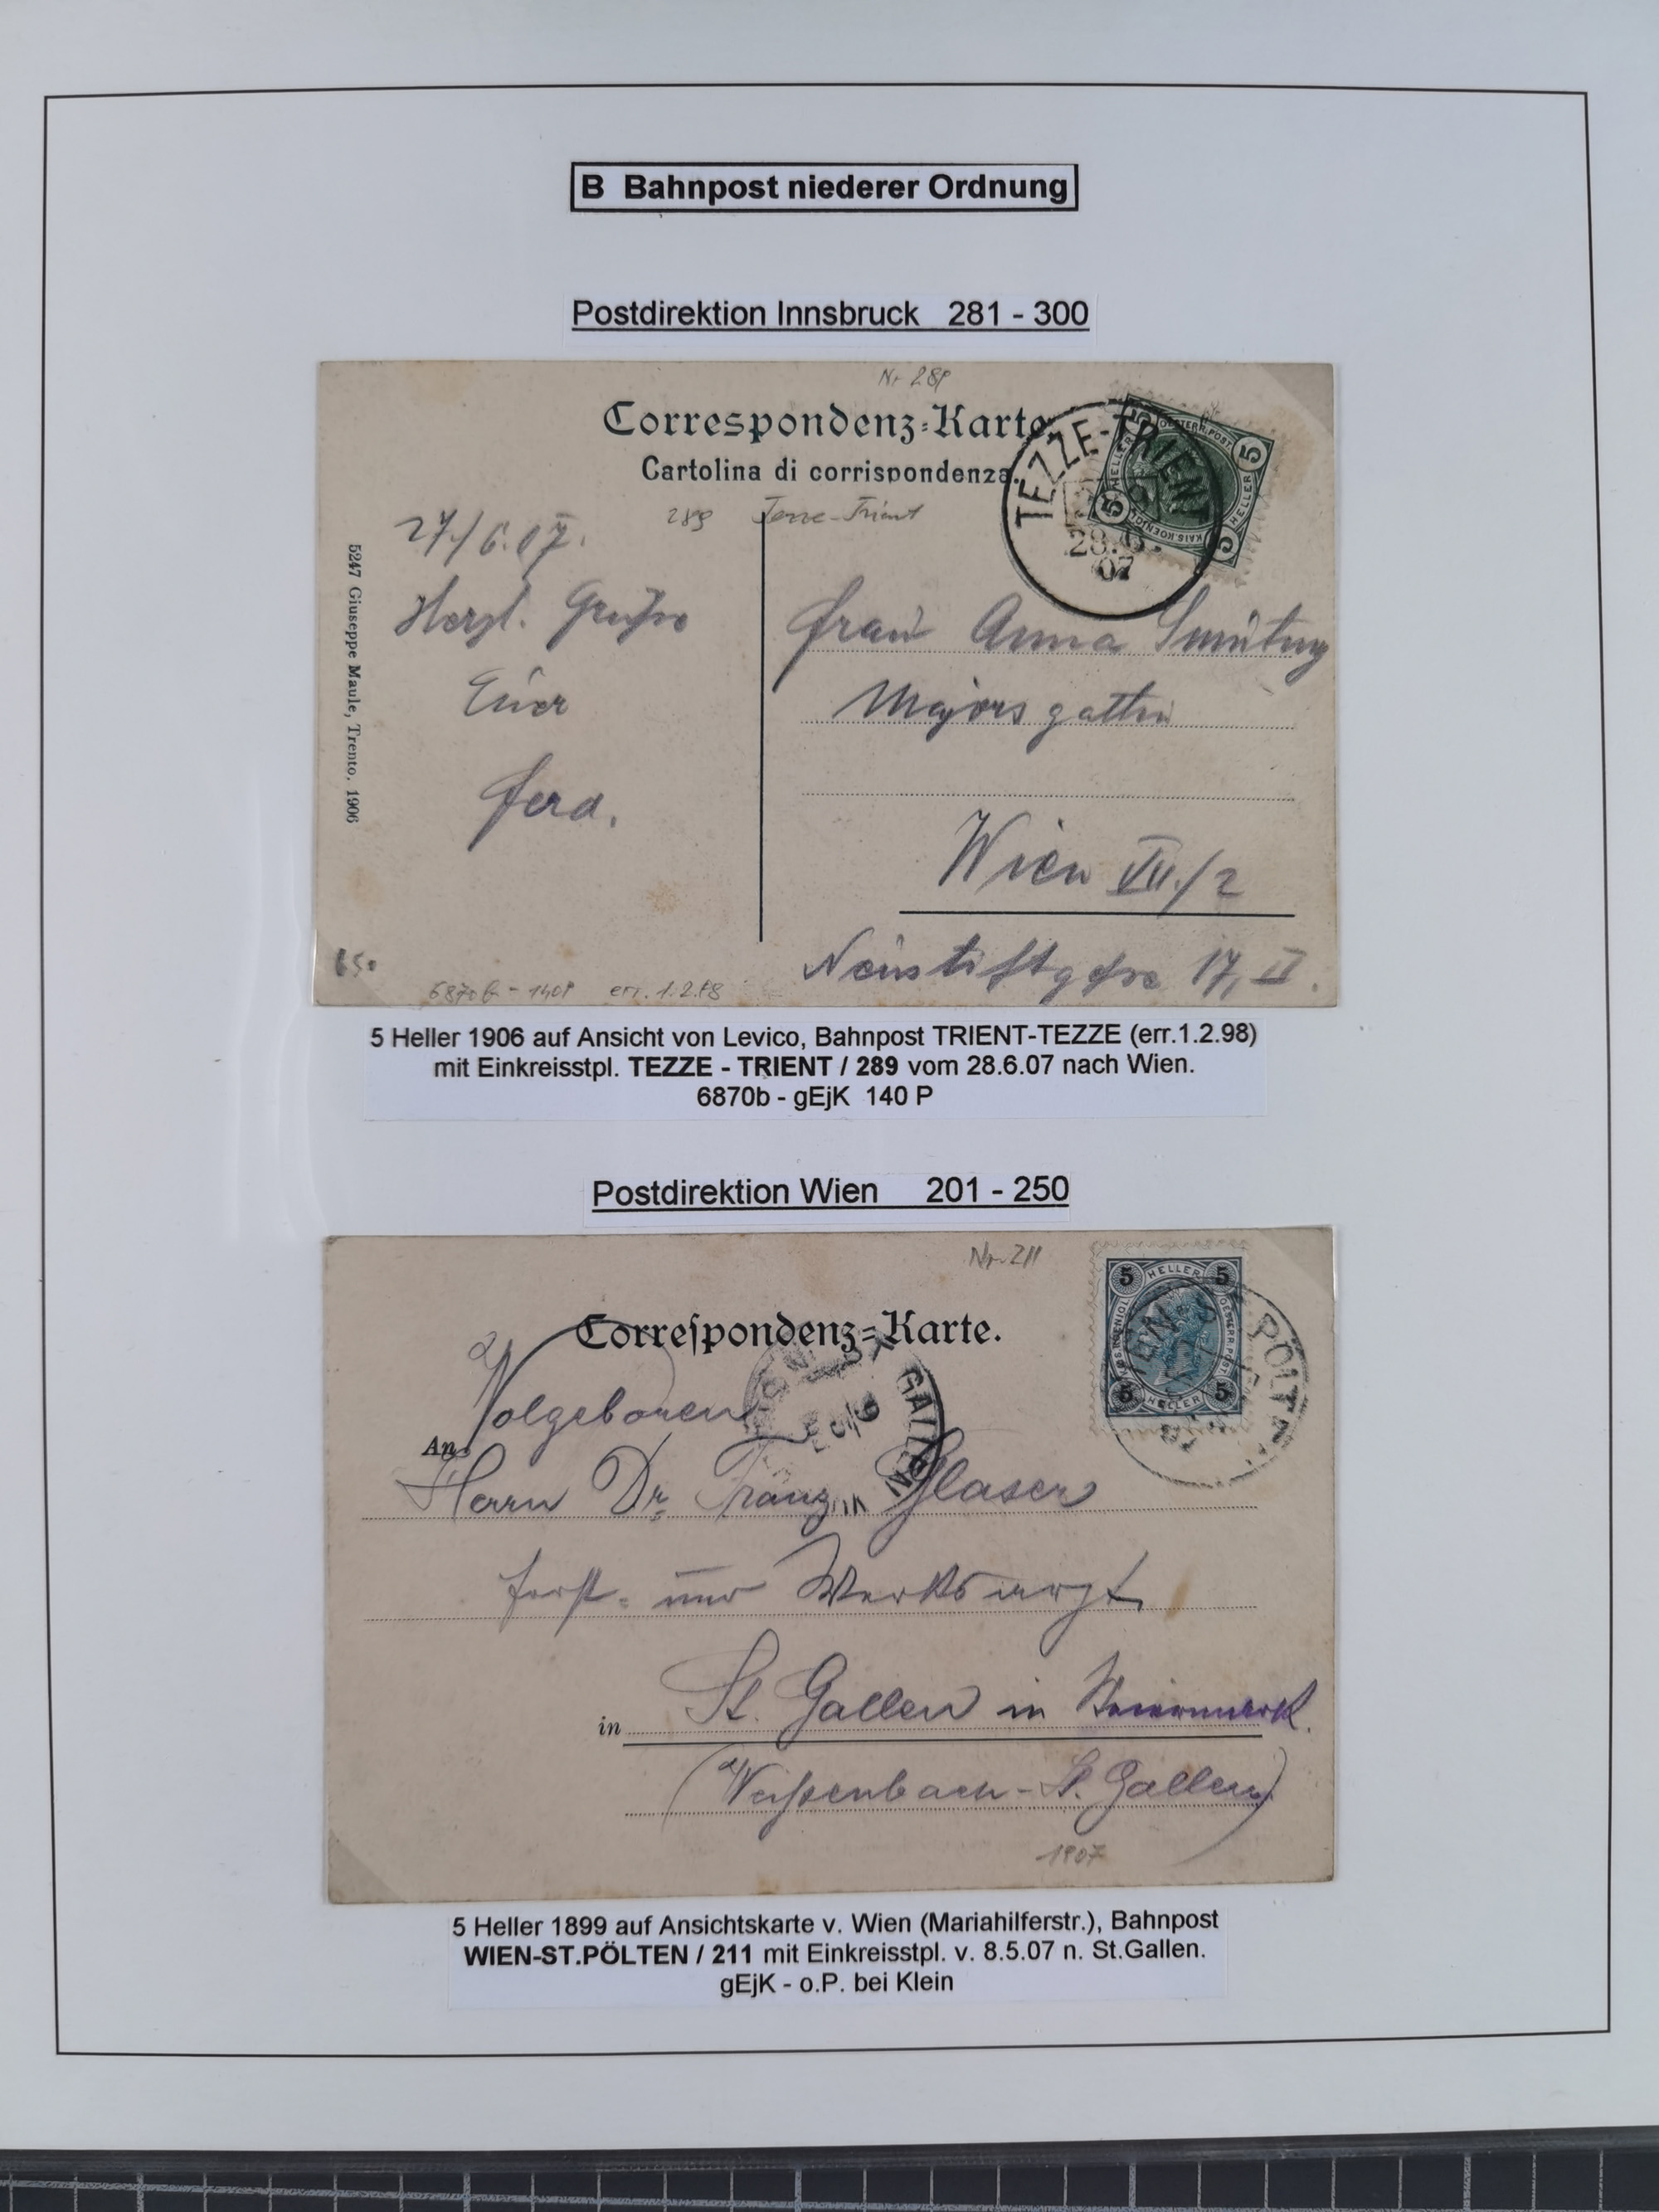 B Bahnpost niederer Ordnung
Postdirektion Innsbruck 281 - 300
Nr 289
Correspondenz-Karte
Cartolina di corrispondenza.
TEZZE-TRIENT
28.6.
07
OESTERR. POST
5 HELLER 5
KAIS. KOENIGL.
289 Tezze-Trient
27./6.07.
Herzl. Grüße
Euer
Ferd.
5247 Giuseppe Maule, Trento, 1906
Frau Anna
Majorsgattin
Wien VII./2
Neustiftgasse 17, II.
650
6870b - 140P err. 1.2.98
5 Heller 1906 auf Ansicht von Levico, Bahnpost TRIENT-TEZZE (err.1.2.98)
mit Einkreisstpl. TEZZE - TRIENT / 289 vom 28.6.07 nach Wien.
6870b - gEjK 140 P
Postdirektion Wien 201 - 250
Nr. 211
Correſpondenz-Karte.
5 HELLER 5
OESTERR. POST
5 HELLER 5
WIEN PÖLTEN
GALLEN
Wolgeboren
An
Herrn Dr. Franz Glaser
Forst- und Werksarzt
in St. Gallen in Steiermark.
(Weißenbach-St. Gallen)
1907
5 Heller 1899 auf Ansichtskarte v. Wien (Mariahilferstr.), Bahnpost
WIEN-ST.PÖLTEN / 211 mit Einkreisstpl. v. 8.5.07 n. St.Gallen.
gEjK - o.P. bei Klein